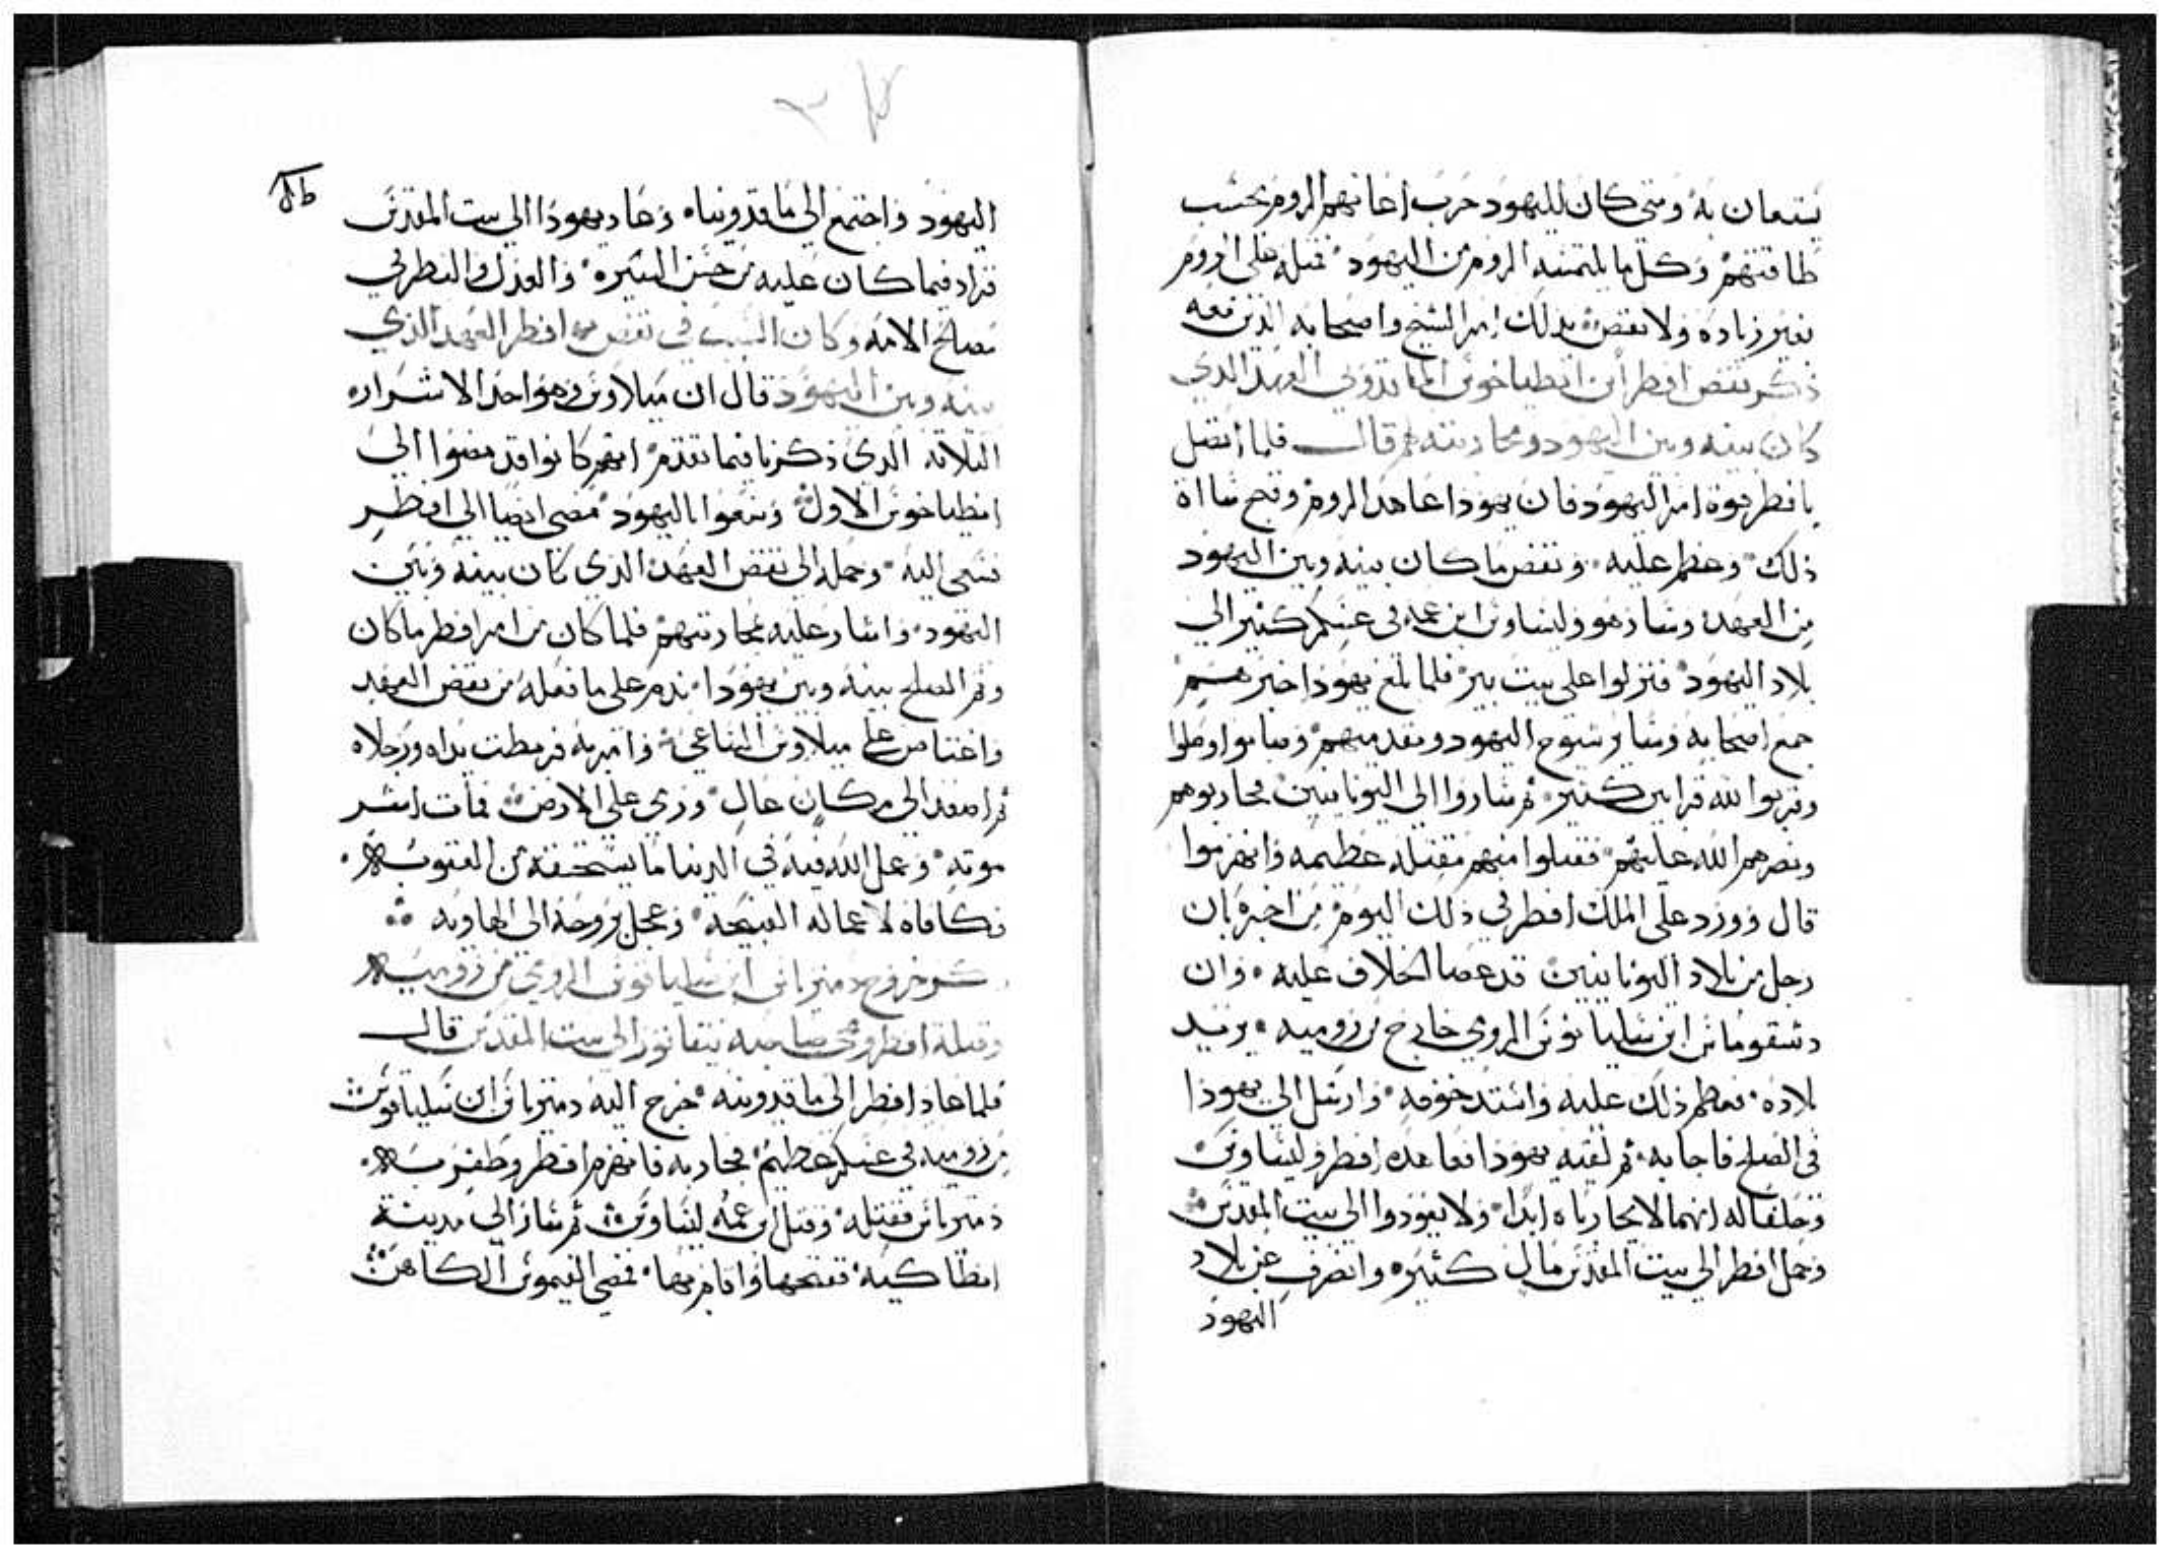 يستعان به ومتى كان لليهود حرب اعانهم الروم بحسب
طاقتهم وكل ما يلتمسه الروم من اليهود فمثله على الروم
بغير زياده ولا نقص بدلك امر الشيخ واصحابه الذين معه
ذكر نقض افطر ابن انطياخوس الماقدوني العهد الدي
كان بينه وبين اليهود ومحاربته لهم قال فلما اتصل
بافطر قوة امر اليهود فان يهودا عاهد الروم وقبح ساه
ذلك وعظم عليه ونقض ما كان بينه وبين اليهود
من العهد وسار هو وليساوس ابن عمه في عسكر كثير الي
بلاد اليهود فنزلوا على بيت بير فلما بلغ يهودا خبرهم
جمع اصحابه وساير شيوخ اليهود ومقدميهم وصاموا وصلوا
وقربوا لله قرابين كثير ثم ساروا الى اليونانيين فحاربوهم
ونصرهم الله عليهم فقتلوا منهم مقتله عظيمه وانهزموا
قال وورد على الملك افطر في ذلك اليوم من اخبره بان
رجل من بلاد اليونانيين قد عصا الخلاف عليه وان
دشقوماس ابن سلياقوس الرومي خارج من روميه يريد
بلاده فعظم ذلك عليه واشتد خوفه وارسل الي يهودا
في الصلح فاجابه ثم لقيه يهودا فعاهده افطر وليساوس
وحلفا له انهما لا يحارباه ابدا ولا يعودوا الى بيت المقدس
وحمل افطر الى بيت المقدس مال كثيره وانصرف عن بلاد
اليهود
اليهود واجتمع الي ماقدونياه وعاد يهودا الي بيت المقدس
فزاد فيما كان عليه من حسن السيره والعدل والنظر في
مصالح الامه وكان السبب في نقض افطر العهد الذي
بينه وبين اليهود قال ان ميلاوس وهو احد الاشراره
الثلاثه الذي ذكرنا فيما تقدم انهم كانوا قد مضوا الى
انطياخوس الاول وسعوا باليهود فمضى ايضا الي افطر
فسعى اليه وحمله الي نقض العهد الذي كان بينه وبين
اليهود واشار عليه بمحاربتهم فلما كان من امر افطر ما كان
وتم الصلح بينه وبين يهودا ندم على ما فعله من نقض العهد
واغتاض على ميلاوس الساعي وامر به فربطت يداه ورجلاه
ثم اصعد الى مكان عال ورمي على الارض فمات اشر
موته وعمل الله فيه في الدنيا ما يستحقه من العقوبه
مكافاه لاعماله القبيحه وعجل بروحه الى الهاويه
ذكر خروج دمترياس ابن سلياقوس الرومي من روميه
وقتله افطر ومجي صاحبه نيقانور الي بيت المقدس قال
فلما عاد افطر الى ماقدونيه خرج اليه دمترياس ابن سلياقوس
من روميه في عسكر عظيم فحاربه فانهزم افطر وظفر به
دمترياس فقتله وقتل ابن عمه ليساوس ثم سار الي مدينة
انطاكيه ففتحها واقام بها فمضى القيموس الكاهن